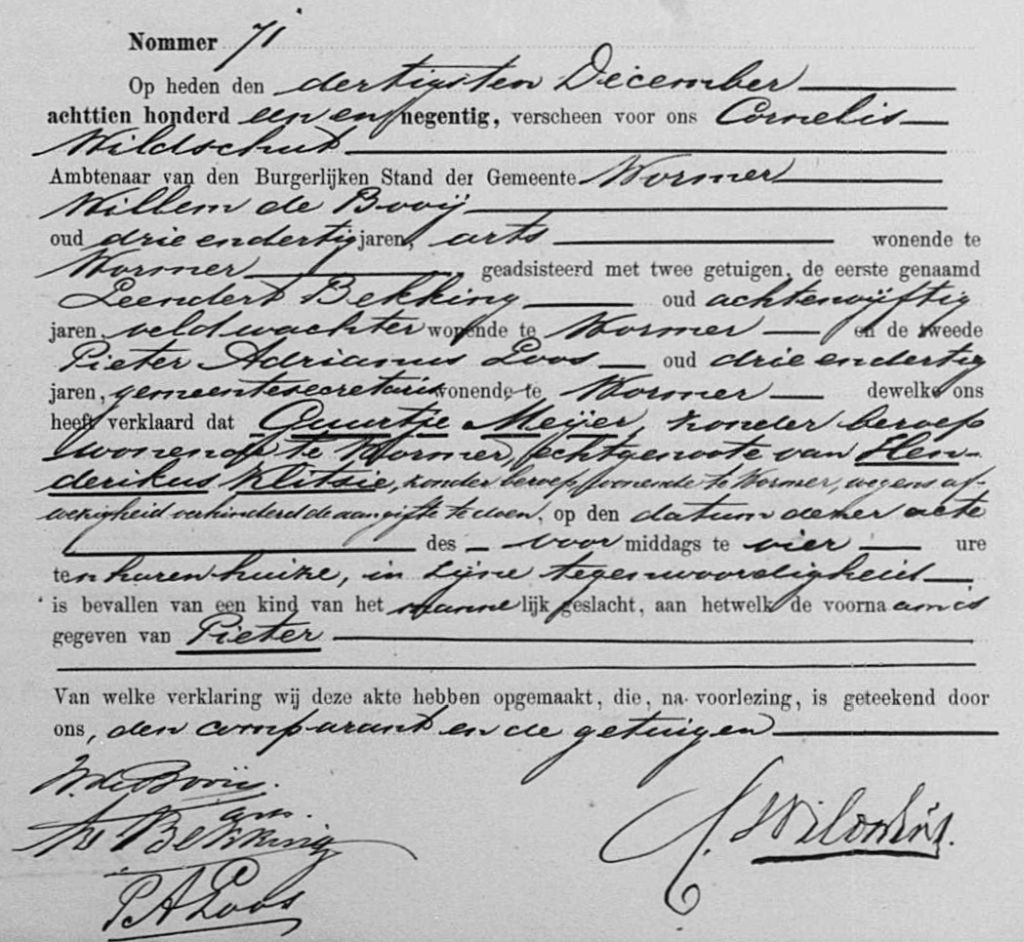 Nommer 71
Op heden den dertigsten December
achttien honderd een en negentig, verscheen voor ons Cornelis
Wildschut
Ambtenaar van den Burgerlijken Stand der Gemeente Wormer
Willem de Booij
oud drie endertig jaren, arts wonende te
Wormer, geadsisteerd met twee getuigen, de eerste genaamd
Leendert Bekking oud achtenvijftig
jaren, veldwachter wonende te Wormer en de tweede
Pieter Adrianus Loos oud drie endertig
jaren, gemeentesecretaris wonende te Wormer dewelke ons
heeft verklaard dat Guurtje Meijer, zonder beroep
wonende te Wormer, echtgenoote van Hen-
derikus Klitsie, zonder beroep, wonende te Wormer, wegens af-
wezigheid verhinderd de aangifte te doen, op den datum dezer acte
des voor middags te vier ure
ten haren huize, in zijne tegenwoordigheid
is bevallen van een kind van het manne lijk geslacht, aan hetwelk de voorna am is
gegeven van Pieter
Van welke verklaring wij deze akte hebben opgemaakt, die, na voorlezing, is geteekend door
ons, den comparant en de getuigen
W. de Booij.
arts.
Bekking
P A Loos
C. Wildschut.